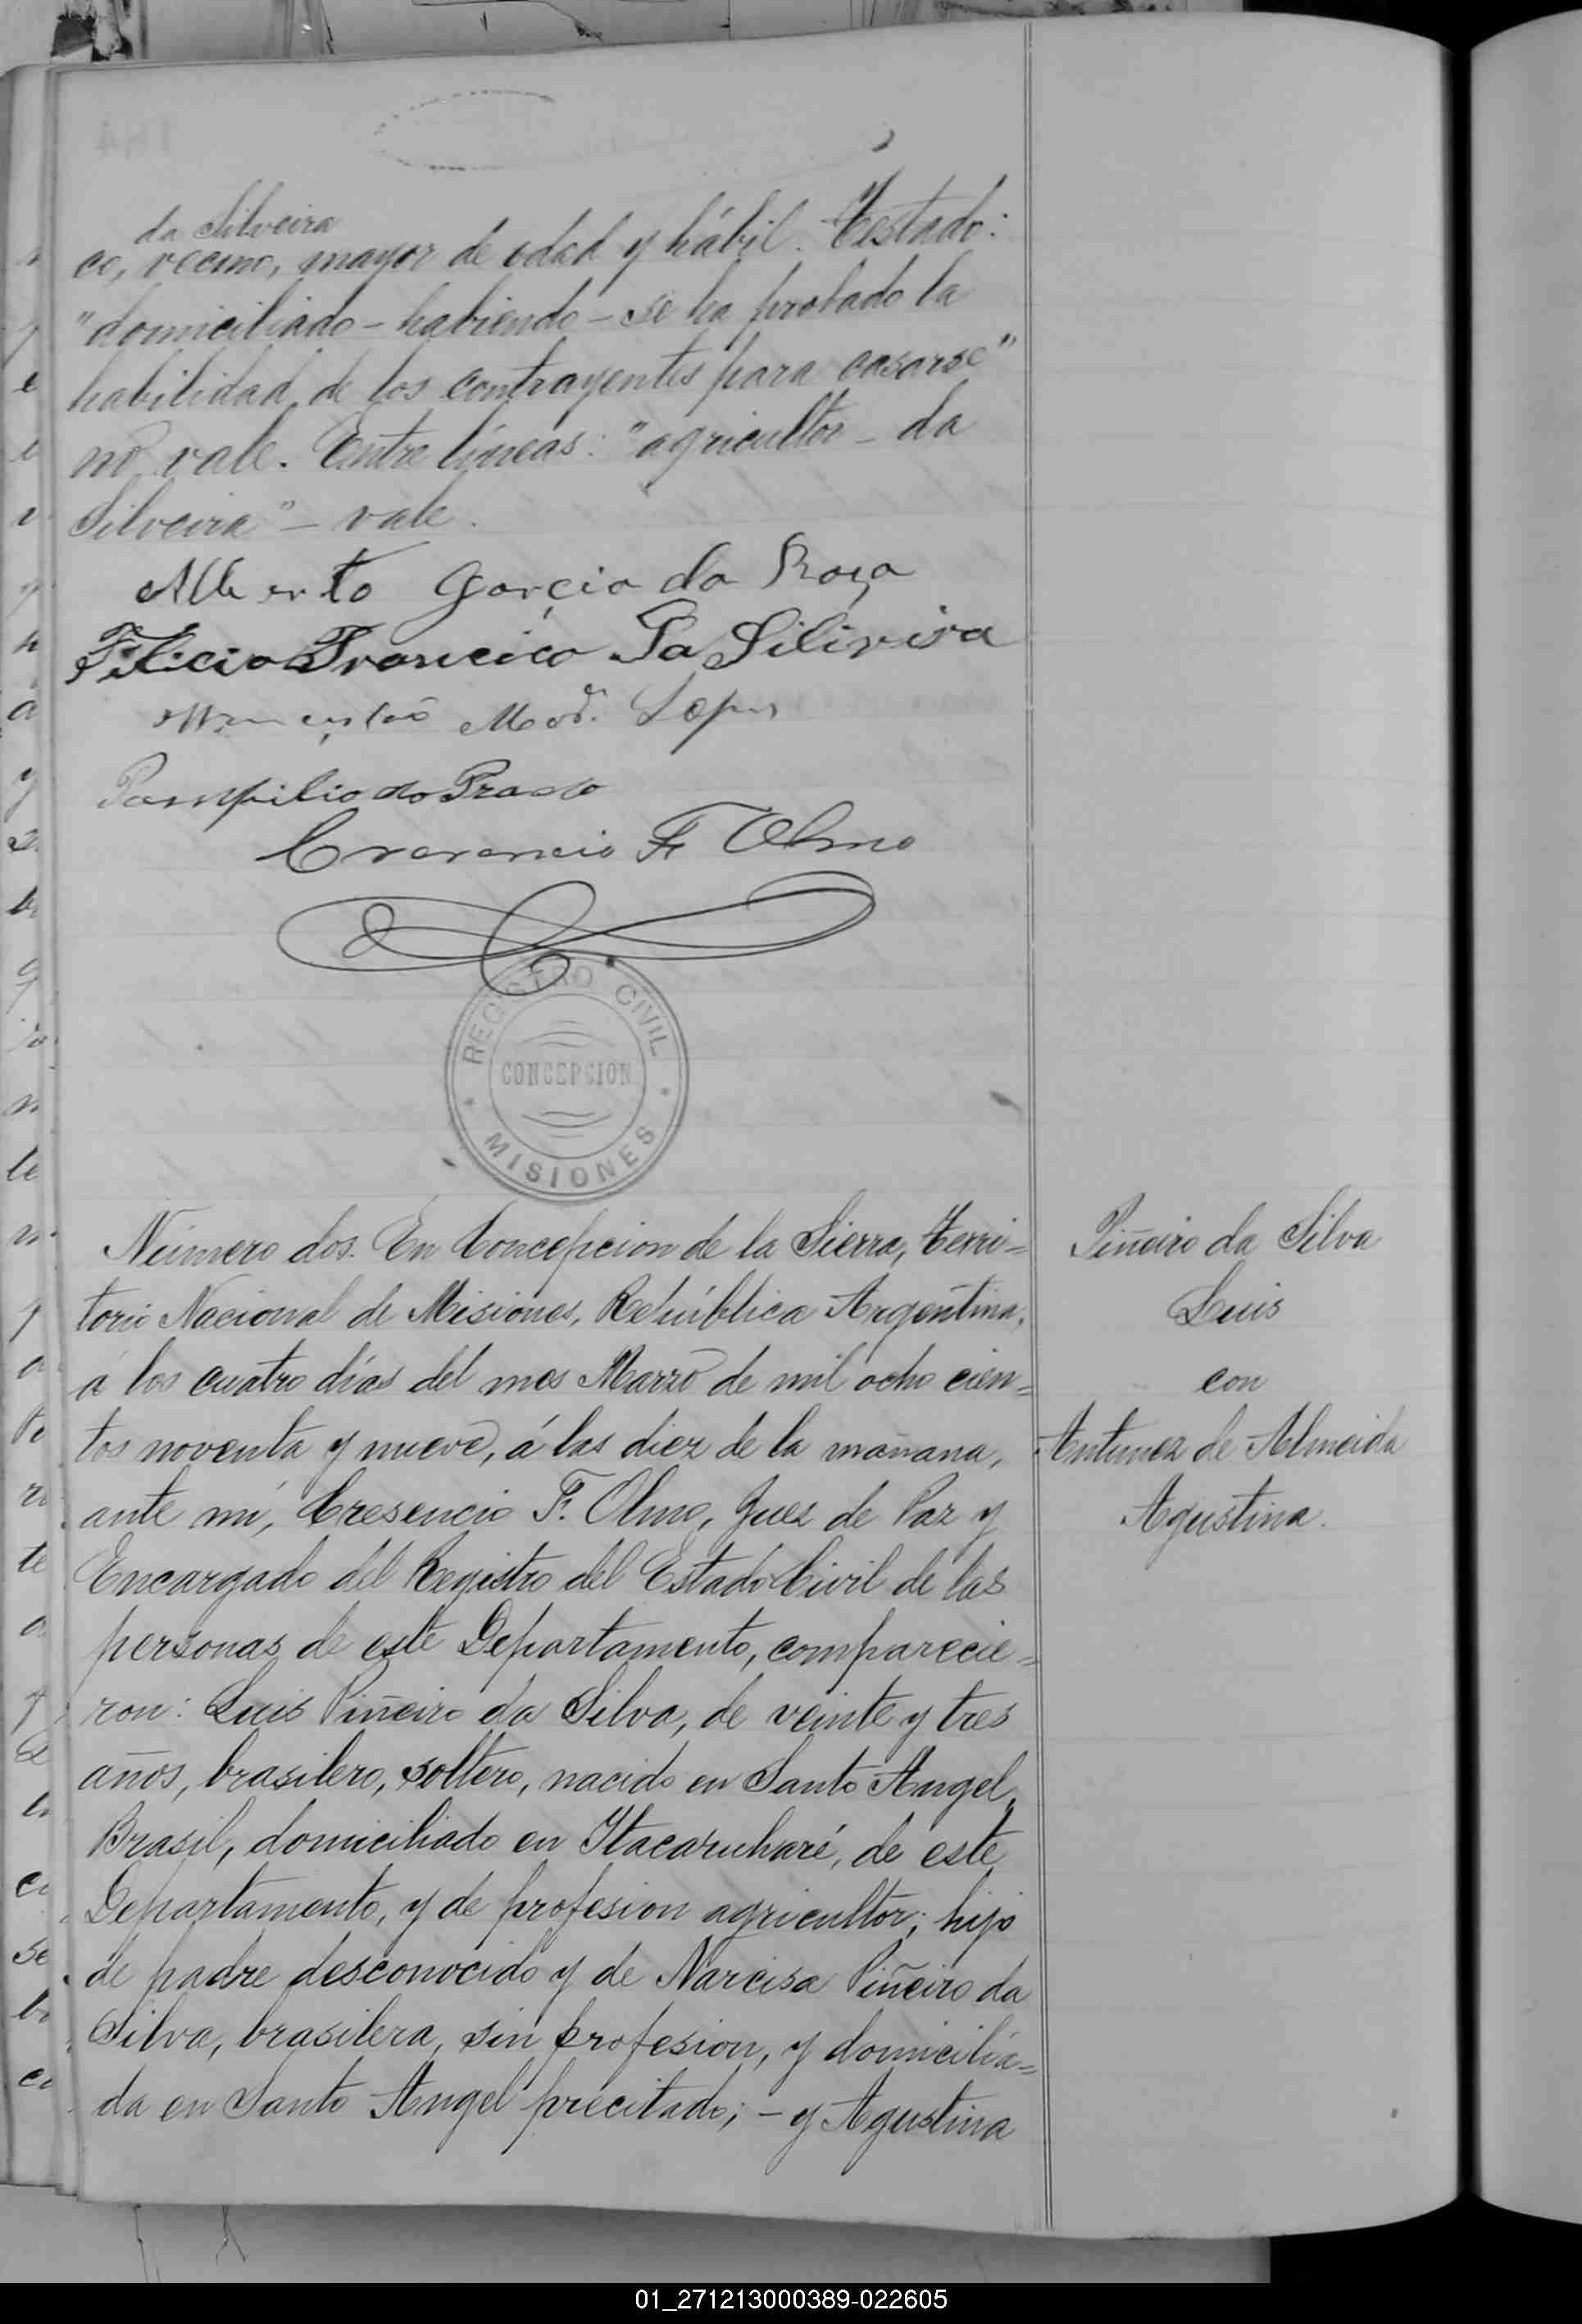 da Silveira
co, vecino, mayor de edad y hábil. Testado:
"domiciliado - habiendo - se ha probado la
habilidad de los contrayentes para casarse"
no vale. Entre líneas: "agricultor - da
Silveira" - vale.
Alberto Garcia da Roza
Filicio Francico Da Silivira
Lopes
Pompilio do Prado
Crecencio F Olmo
REGISTRO CIVIL
CONCEPCION
MISIONES
Número dos. En Concepcion de la Sierra, Terri=
torio Nacional de Misiones, República Argentina,
á los cuatro días del mes Marzo de mil ocho cien=
tos noventa y nueve, á las diez de la mañana,
ante mí, Cresencio F. Olmo, Juez de Paz y
Encargado del Registro del Estado Civil de las
personas de este Departamento, comparecie=
ron: Luis Piñeiro da Silva, de veinte y tres
años, brasilero, soltero, nacido en Santo Angel,
Brasil, domiciliado en Itacaruharé, de este
Departamento, y de profesion agricultor; hijo
de padre desconocido y de Narcisa Piñeiro da
Silva, brasilera, sin profesion, y domicilia=
da en Santo Angel precitado; - y Agustina
Piñeiro da Silva
Luis
con
Antunez de Almeida
Agustina.
01_271213000389-022605